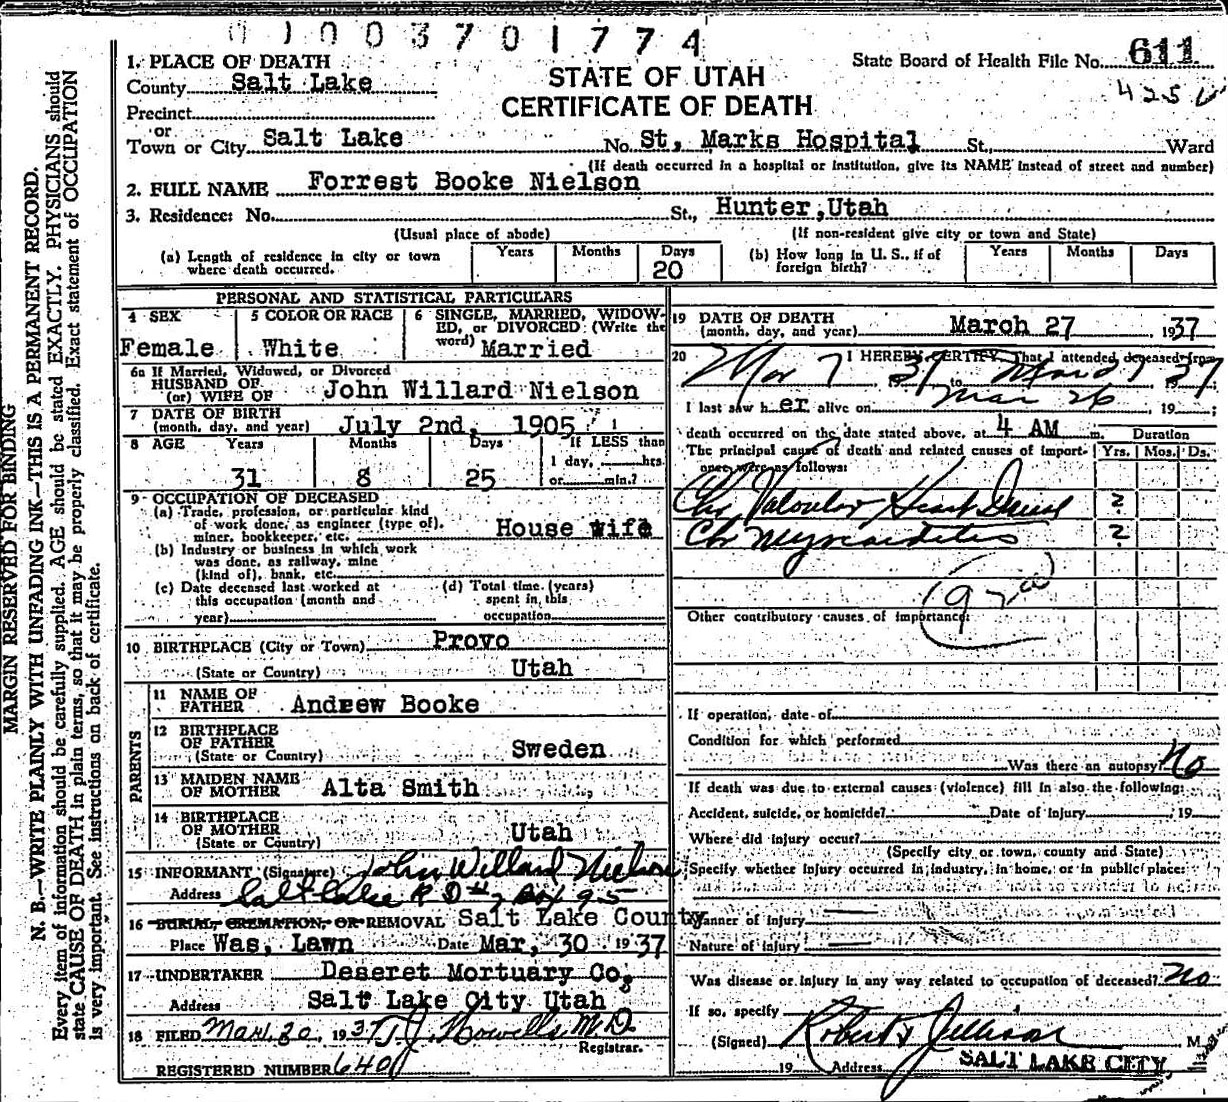 01003701774
1. PLACE OF DEATH
County Salt Lake
Precinct
or
Town or City Salt Lake No. St, Marks Hospital St. Ward
STATE OF UTAH
CERTIFICATE OF DEATH
State Board of Health File No. 611
425
(If death occurred in a hospital or institution, give its NAME instead of street and number)
2. FULL NAME Forrest Booke Nielson
3. Residence: No. St., Hunter, Utah
(Usual place of abode) (If non-resident give city or town and State)
(a) Length of residence in city or town where death occurred. Years Months Days 20
(b) How long in U. S., if of foreign birth? Years Months Days
PERSONAL AND STATISTICAL PARTICULARS
4 SEX Female
5 COLOR OR RACE White
6 SINGLE, MARRIED, WIDOWED, or DIVORCED: (Write the word) Married
6a If Married, Widowed, or Divorced
HUSBAND OF
(or) WIFE OF John Willard Nielson
7 DATE OF BIRTH
(month, day, and year) July 2nd, 1905
8 AGE Years Months Days If LESS than
1 day, hrs.
31 8 25 or min.?
9 OCCUPATION OF DECEASED
(a) Trade, profession, or particular kind
of work done, as engineer (type of),
miner, bookkeeper, etc. House wife
(b) Industry or business in which work
was done, as railway, mine
(kind of), bank, etc.
(c) Date deceased last worked at
this occupation (month and
year)
(d) Total time (years)
spent in this
occupation
10 BIRTHPLACE (City or Town) Provo
(State or Country) Utah
PARENTS
11 NAME OF
FATHER Andrew Booke
12 BIRTHPLACE
OF FATHER
(State or Country) Sweden
13 MAIDEN NAME
OF MOTHER Alta Smith
14 BIRTHPLACE
OF MOTHER
(State or Country) Utah
15 INFORMANT (Signature) John Willard Nielson
Address Salt Lake R D # 2 Box 95
16 BURIAL, CREMATION, OR REMOVAL Salt Lake County
Place Was, Lawn Date Mar, 30 1937
17 UNDERTAKER Deseret Mortuary Co,
Address Salt Lake City Utah
18 FILED Mar. 30, 1937 T.J. Howells M.D.
Registrar.
REGISTERED NUMBER 640
19 DATE OF DEATH
(month, day, and year) March 27 1937
20 I HEREBY CERTIFY, That I attended deceased from
Mar 7 1937 to Mar 27 1937
I last saw her alive on Mar 26, 19 ;
death occurred on the date stated above, at 4 AM m.
Duration
The principal cause of death and related causes of importance were as follows: Yrs. Mos. Ds.
Chr Valvular Heart Disease ?
Chr Myocarditis ?
Other contributory causes of importance:
If operation, date of
Condition for which performed
Was there an autopsy? No
If death was due to external causes (violence) fill in also the following:
Accident, suicide, or homicide? Date of injury , 19
Where did injury occur?
(Specify city or town, county and State)
Specify whether injury occurred in industry, in home, or in public place:
Manner of injury
Nature of injury
Was disease or injury in any way related to occupation of deceased? No
If so, specify
(Signed) M.
19 Address SALT LAKE CITY
MARGIN RESERVED FOR BINDING
N. B.—WRITE PLAINLY WITH UNFADING INK—THIS IS A PERMANENT RECORD.
Every item of information should be carefully supplied. AGE should be stated EXACTLY. PHYSICIANS should
state CAUSE OF DEATH in plain terms, so that it may be properly classified. Exact statement of OCCUPATION
is very important. See instructions on back of certificate.